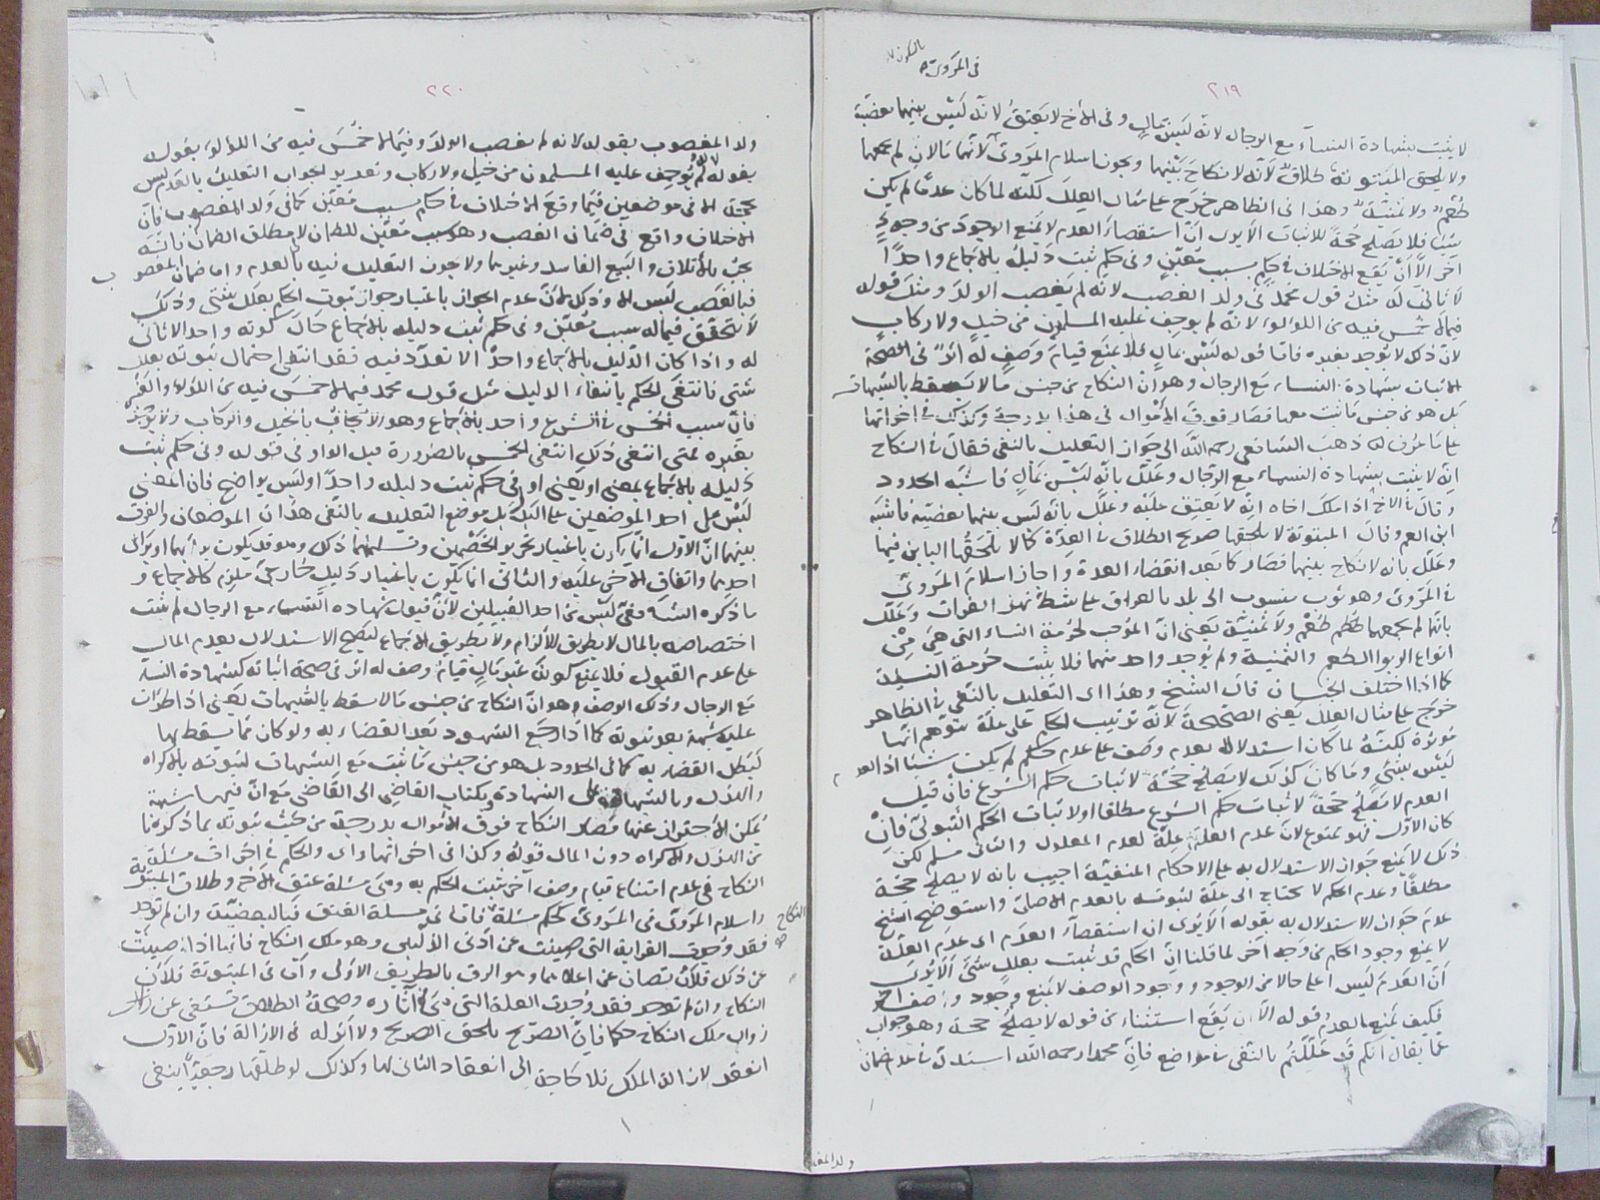 بالسكون
في المروي
٢١٩
لا يثبت بشهادة النساء مع الرجال لانه ليس بمال وفي الأخ لا يعتق لانه ليس بينهما بعضية
ولا يلحق المبتوتة طلاق لأنه لا نكاح بينهما ويجوز اسلام المروي لأنهما مالان لم يجمعهما
طعم ولا ثمنية وهذا في الظاهر خرج على مثال العلل لكنه لما كان عدما لم يكن
شيئا فلا يصلح حجة للاثبات الا يرى ان استقصاء العدم لا يمنع الوجود من وجه
آخر الا أن يقع الاختلاف في حكم بسبب معين وفي حكم ثبت دليله بالاجماع واحدا
لا ثاني له مثل قول محمد في ولد الغصب لانه لم يغصب الولد ومثل قوله
فيما لا خمس فيه من اللؤلؤ لانه لم يوجف عليه المسلمون من خيل ولا ركاب
لان ذلك لا يوجد بغيره فاما قوله ليس بمال فلا يمنع قيام وصف له اثر في صحة
الاثبات بشهادة النساء مع الرجال وهو ان النكاح من جنس ما لا يسقط بالشبهات
بل هو من جنس ما يثبت معها فصار فوق الأموال في هذا بدرجة وكذلك في اخواتها
على ما عرف له ذهب الشافعي رحمه الله الى جواز التعليل بالنفي فقال في النكاح
انه لا يثبت بشهادة النساء مع الرجال وعلل بانه ليس بمال فاشبه الحدود
وقال في الاخ اذا ملك اخاه انه لا يعتق عليه وعلل بانه ليس بينهما بعضية فاشبه
ابن العم وقال المبتوتة لا يلحقها صريح الطلاق في العدة كما لا يلحقها الباين فيها
وعلل بانه لا نكاح بينهما فصار كما بعد انقضاء العدة واجاز اسلام المروي
في المروي وهو ثوب منسوب الى بلد بالعراق على شط نهر الفرات وعلل
بانهما لم يجمعهما طعم ولا ثمنية يعني ان الموجب لحرمة النساء التي هي من
انواع الربوا الطعم والثمنية ولم يوجد واحد منهما فلا يثبت حرمة النسيئة
كما اذا اختلف الجنسان قال الشيخ وهذا اي التعليل بالنفي في الظاهر
خرج على مثال العلل يعني الصحيحة لانه ترتيب الحكم على علة يتوهم انها
مؤثرة لكنه لما كان استدلالا بعدم وصف على عدم حكم لم يكن شيئا اذ العدم
ليس بشيء وما كان كذلك لا يصلح حجة لاثبات حكم الشرع فان قيل
العدم لا يصلح حجة لاثبات حكم الشرع مطلقا او لاثبات الحكم الثبوتي فان
كان الاول فهو ممنوع لان عدم العلة علة لعدم المعلول والثاني مسلم لكن
ذلك لا يمنع جواز الاستدلال به على الاحكام المنفية اجيب بانه لا يصلح حجة
مطلقا وعدم الحكم لا يحتاج الى علة لثبوته بالعدم الاصلي واستوضح الشيخ
عدم جواز الاستدلال به بقوله الا يرى ان استقصاء العدم اي عدم العلة
لا يمنع وجود الحكم من وجه آخر لما قلنا ان الحكم قد يثبت بعلل شتى الا يرى
أن العدم ليس اعلى حالا من الوجود ووجود الوصف لا يمنع وجود وصف آخر
فكيف يمنع بالعدم وقوله الا ان يقع استثناء من قوله لا يصلح حجة وهو جواب
عما يقال انكم قد عللتم بالنفي في مواضع فان محمدا رحمه الله استدل في عدم ضمان
ولد المغصوب
٢٢٠
ولد المغصوب بقوله لانه لم يغصب الولد وفيما لا خمس فيه من اللؤلؤ بقوله
بقوله لم يوجف عليه المسلمون من خيل ولا ركاب وتقدير الجواب التعليل بالعدم ليس
بحجة الا في موضعين فيما وقع الاختلاف في حكم بسبب معين كما في ولد المغصوب فان
الاختلاف واقع في ضمان الغصب وهو سبب معين للضمان لا مطلق الضمان فانه
يجب بالاتلاف والبيع الفاسد وغيرهما ولا يجوز التعليل فيه بالعدم واما ضمان المغصوب
فبالغصب ليس الا وذلك لان عدم الجواز باعتبار جواز ثبوت الحكم بعلل شتى وذلك
لا يتحقق فيما له سبب معين وفي حكم ثبت دليله بالاجماع حال كونه واحدا لا ثاني
له واذا كان الدليل بالاجماع واحدا لا تعدد فيه فقد انتفى احتمال ثبوته بعلل
شتى فانتفى الحكم بانتفاء الدليل مثل قول محمد فيما لا خمس فيه من اللؤلؤ والعنبر
فان سبب الخمس في الشرع واحد بالاجماع وهو الايجاف بالخيل والركاب ولا يوجد
بغيره فمتى انتفى ذلك انتفى الخمس بالضرورة قيل الواو في قوله وفي حكم ثبت
دليله بالاجماع بمعنى او يعني او في حكم ثبت دليله واحدا وليس بواضح فان المعنى
ليس على احد الموضعين على البدل بل موضع التعليل بالنفي هذان الموضعان والفرق
بينهما ان الاول انما يكون باعتبار تحرير الخصمين وتسليمهما ذلك وهو قد يكون برأيهما او برأي
احدهما واتفاق الاخر عليه والثاني انما يكون باعتبار دليل خارجي ملزم كالاجماع و
ما ذكره الشافعي ليس من احد القبيلين لأن قبول شهادة النساء مع الرجال لم يثبت
اختصاصه بالمال لا بطريق الالزام ولا بطريق الاجماع ليصح الاستدلال بعدم المال
على عدم القبول فلا يمنع كونه غير مال قيام وصف له اثر في صحة اثباته كشهادة النساء
مع الرجال وذلك الوصف هو ان النكاح من جنس ما لا يسقط بالشبهات يعني اذا طرأت
عليه شبهة بعد ثبوته كما اذا رجع الشهود بعد القضاء به ولو كان مما يسقط بها
لبطل القضاء به كما في الحدود بل هو من جنس ما يثبت مع الشبهات لثبوته بالاكراه
والهزل وبالشهادة على الشهادة وبكتاب القاضي الى القاضي مع ان فيهما شبهة
يمكن الاحتراز عنها فصار النكاح فوق الاموال بدرجة من حيث ثبوته بما ذكرنا
من الهزل والاكراه دون المال قوله وكذا في اخواتها اي والحكم في اخوات مسئلة
النكاح في عدم امتناع قيام وصف آخر يثبت الحكم به وهي مسئلة عتق الأخ وطلاق المبتوتة
واسلام المروي في المروي كحكم مسئلة النكاح فاما في مسئلة العتق فبالبعضية وان لم توجد
فقد وجدت القرابة التي صينت عن أدنى الذلين وهو ملك النكاح فانها اذا صينت
عن ذلك فلان تصان عن اعلاهما وهو الرق بالطريق الاولى واما في المبتوتة فلأن
النكاح وان لم توجد فقد وجدت العدة التي هي من آثاره وصحة الطلاق تستغني عن
زوال ملك النكاح حكما فان الصريح يلحق الصريح ولا اثر له في الازالة فان الاول
انعقد لازالة الملك فلا حاجة الى انعقاد الثاني لها وكذلك لو طلقها رجعيا ينفي